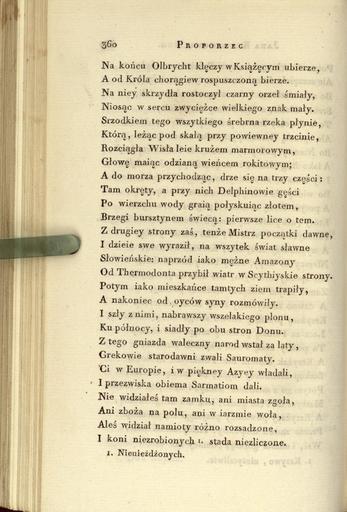 360 PROPORZEC
Na końcu Olbrycht klęczy w Książęcym ubierze,
A od Króla chorągiew rospuszczoną bierze.
Na niey skrzydła rostoczył czarny orzeł śmiały,
Niosąc w sercu zwycięzce wielkiego znak mały.
Srzodkiem tego wszytkiego śrebrna rzeka płynie,
Którą, leżąc pod skałą przy powiewney trzcinie,
Rozciągła Wisła leie krużem marmorowym,
Głowę maiąc odzianą wieńcem rokitowym;
A do morza przychodząc, drze się na trzy części:
Tam okręty, a przy nich Delphinowie gęści
Po wierzchu wody graią połyskuiąc złotem,
Brzegi bursztynem świecą: pierwsze lice o tem.
Z drugiey strony zaś, tenże Mistrz początki dawne,
I dzieie swe wyraził, na wszytek świat sławne
Słowieńskie: naprzód iako mężne Amazony
Od Thermodonta przybił wiatr w Scythiyskie strony.
Potym iako mieszkańce tamtych ziem trapiły,
A nakoniec od oyców syny rozmówiły.
I szły z nimi, nabrawszy wszelakiego plonu,
Ku północy, i siadły po obu stron Donu.
Z tego gniazda waleczny narod wstał za laty,
Grekowie starodawni zwali Sauromaty.
Ci w Europie, i w piękney Azyey władali,
I przezwiska obiema Sarmatiom dali.
Nie widziałeś tam zamku, ani miasta zgoła,
Ani zboża na polu, ani w iarzmie woła,
Aleś widział namioty różno rozsadzone,
I koni niezrobionych 1. stada niezliczone.
1. Nieuieżdżonych.